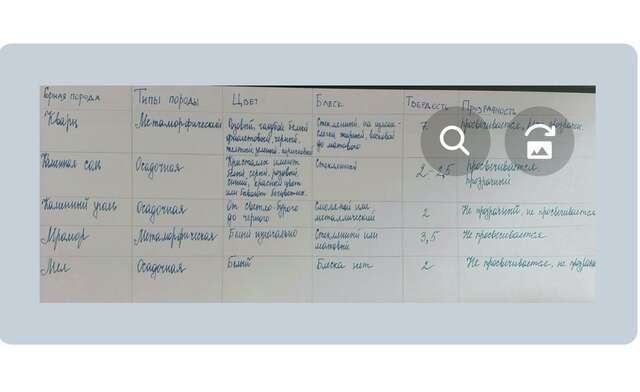 Горная порода Типы породы Цвет Блеск Твердость Прозрачность
Кварц Метаморфический Розовый, голубой белый
фиолетовый, черный,
зеленый, коричневый
Стеклянный, на
жирный, восковой
до матового
7 просвечивается,
Каменная соль Осадочная Кристаллы имеют
белый серый, розовый,
синий, красный цвет
или бывают бесцветные
Стеклянный 2-2,5 просвечивается.
прозрачный
Каменный уголь Осадочная От светло-бурого
до черного
Смоляной или
металлический
2 Не прозрачный, не просвечивается
Мрамор Метаморфическая Белый изначально Стеклянный или
матовый
3,5 Не просвечивается
Мел Осадочная Белый Блеска нет 2 Не просвечивается, не